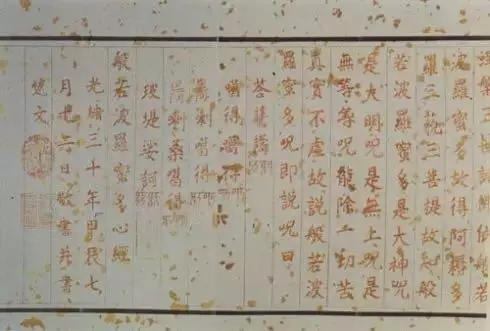 槃三世諸佛依般若
波羅蜜多故得阿耨多
羅三藐三菩提故知般
若波羅蜜多是大神咒
是大明咒是無上咒是
無等等咒能除一切苦
真實不虛故說般若波
羅蜜多咒即說咒曰
噶得噶得
噶剌噶得
噶剌桑噶得
堤娑訶
般若波羅蜜多心經
光緒三十年甲辰七
月廿六日敬書并